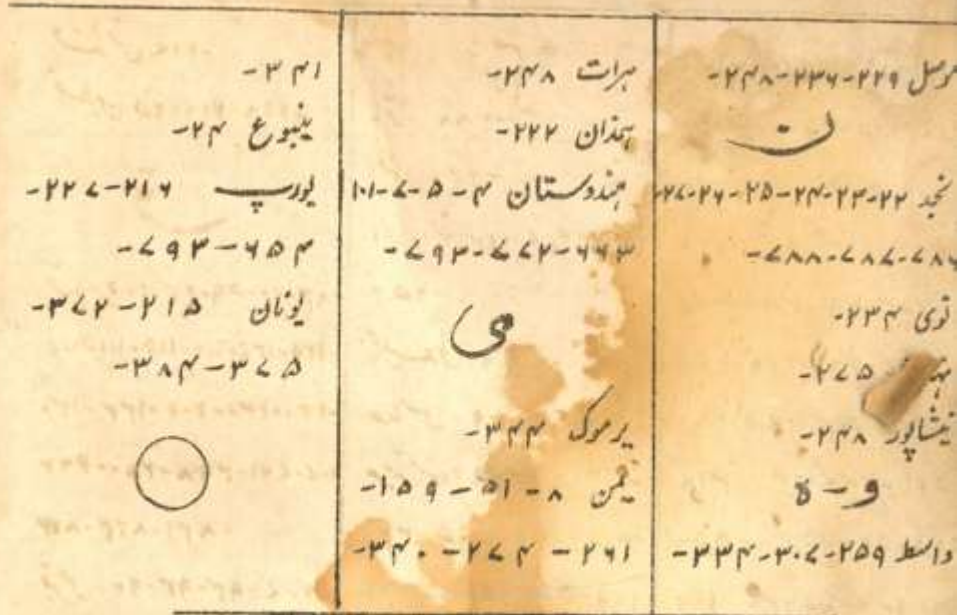 موصل ۲۲۹-۲۳۶-۲۴۸-
ن
نجد ۲۲-۲۳-۲۴-۲۵-۲۶-۲۷-
۷۸۶-۷۸۷-۷۸۸-
نوی ۲۳۴-
۲۷۵-
نیشاپور ۲۴۸-
و-ہ
واسط ۲۵۹-۳۰۷-۳۳۴-
ہرات ۲۴۸-
ہمذان ۲۲۲-
ہندوستان ۴-۵-۷-۱۰۱
۶۶۳-۷۷۲-۷۹۳-
ی
یرموک ۳۴۴-
یمن ۸-۵۱-۱۵۹-
۲۶۱-۲۷۴-۳۴۰-
۳۴۱-
ینبوع ۲۴-
یورپ ۲۱۶-۲۲۷-
۶۵۴-۷۹۳-
یونان ۲۱۵-۳۷۲-
۳۷۵-۳۸۴-